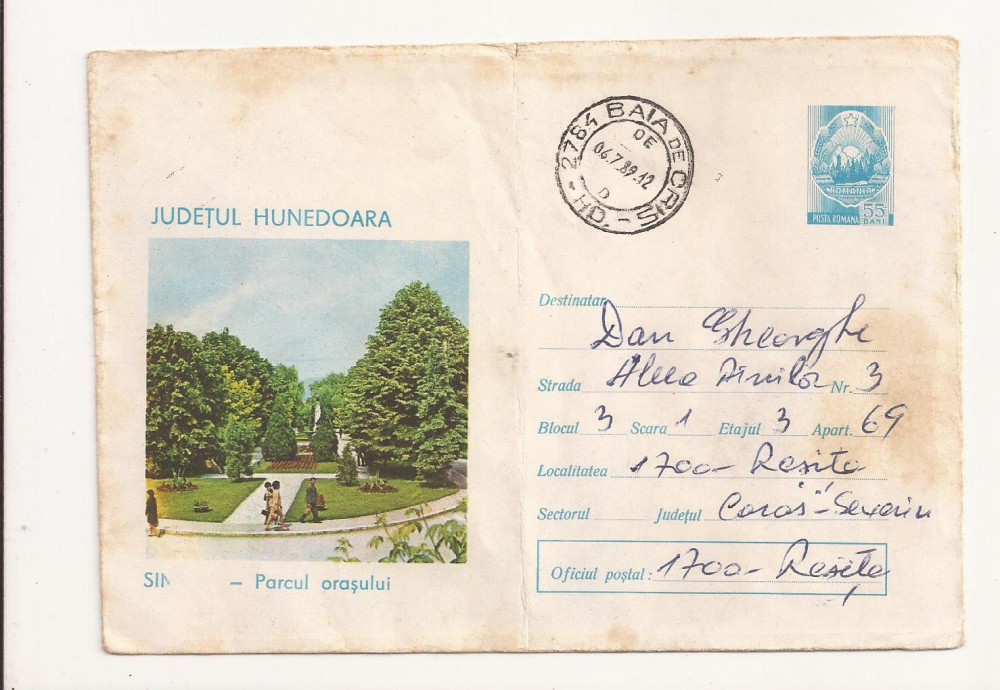 JUDEȚUL HUNEDOARA
SIM – Parcul orașului
2784 BAIA DE CRIS - HD -
OE
06.7.89.12
D
ROMANIA
POSTA ROMANA 55 BANI
Destinatar
Dan Gheorghe
Strada Aleea Nr. 3
Blocul 3 Scara 1 Etajul 3 Apart. 69
Localitatea 1700 - Reșița
Sectorul Județul Caraș-Severin
Oficial poștal: 1700 - Reșița